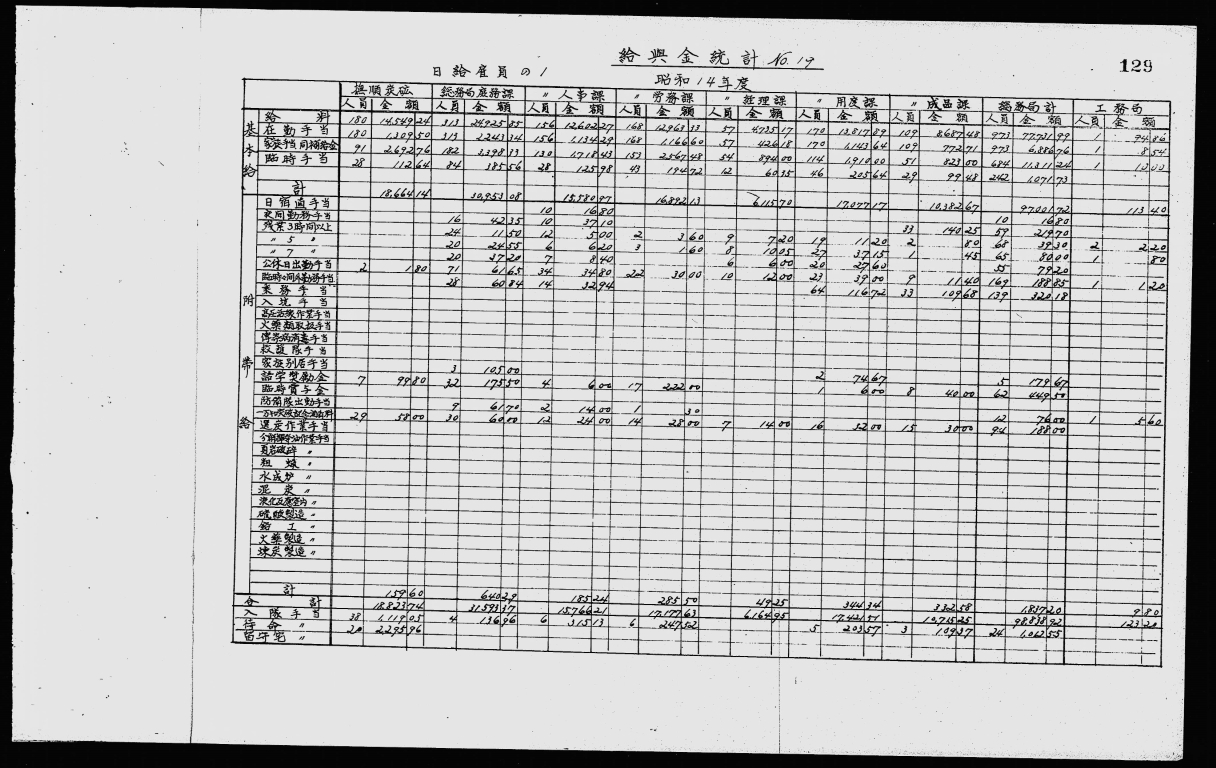 給與金統計 No.19
129
日給雇員の1
昭和14年度
撫順炭砿 総務局庶務課 〃人事課 〃労務課 〃経理課 〃用度課 〃成品課 総務局計 工務局
人員 金額 人員 金額 人員 金額 人員 金額 人員 金額 人員 金額 人員 金額 人員 金額 人員 金額
基本給
給料 180 14,549 24 313 24,925 85 156 12,602 27 168 12,963 33 57 4,735 17 170 13,817 89 109 8,687 48 973 77,731 99 1 94 86
在勤手当 180 1,309 50 313 2,243 34 156 1,134 29 168 1,166 60 57 426 18 170 1,143 64 109 772 71 973 6,886 76 1 8 54
家族手当同補給金 91 2,692 76 182 3,398 33 130 1,718 43 153 2,567 48 54 894 00 114 1,910 00 51 823 00 684 11,311 24 1 10 00
臨時手当 28 112 64 84 385 56 28 125 98 43 194 72 12 60 35 46 205 64 29 99 48 242 1,071 73
計 18,664 14 30,953 08 15,580 97 16,892 13 6,115 70 17,077 17 10,382 67 97,001 72 113 40
附帯給
日宿直手当 10 16 80 10 16 80
夜間勤務手当 16 42 35 10 37 10 33 140 25 59 219 70
残業3時間以上 24 11 50 12 5 00 2 3 60 9 7 20 19 11 20 2 80 68 39 30 2 2 20
〃5〃 20 24 55 6 6 20 3 1 60 8 10 05 27 37 15 1 45 65 80 00 1 80
〃7〃 20 37 20 7 8 40 6 6 00 20 27 60 55 79 20
公休日出勤手当 2 1 80 71 61 65 34 34 80 22 30 00 10 12 00 23 39 00 9 11 40 169 188 85 1 1 20
臨時時間外勤務手当 28 60 84 14 32 94 64 116 72 33 109 68 139 320 18
業務手当
入坑手当
火薬類取扱手当
傳染病消毒手当
救護隊手当
家族別居手当 3 105 00 2 74 67 5 179 67
語学奨励金 7 99 80 32 175 50 4 6 00 17 222 00 1 6 00 8 40 00 62 449 50
臨時賞与金
防衛隊出動手当 9 61 70 2 14 00 1 30 12 76 00 1 5 60
29 58 00 30 60 00 12 24 00 14 28 00 7 14 00 16 32 00 15 30 00 94 188 00
選炭作業手当
頁岩破碎〃
粗蝋〃
水成炉〃
泥炭〃
硫酸製造〃
鉛工〃
火薬製造〃
煉炭製造〃
計 159 60 640 29 185 24 285 50 49 25 344 34 332 58 1,837 20 9 80
合計 18,823 74 31,593 37 15,766 21 17,177 63 6,164 95 17,421 51 10,715 25 98,838 92 123 20
入隊手当 38 1,119 05 4 136 96 6 315 13 6 247 52 5 203 57 3 109 37 24 1,012 55
待命〃 20 2,295 96
留守宅〃